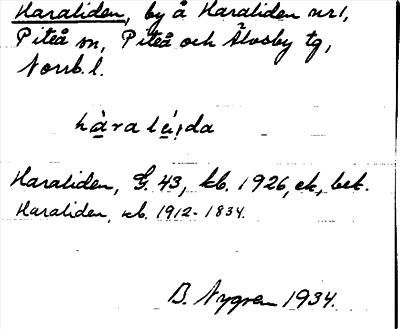 Haraliden, by å Haraliden nr 1,
Piteå sn, Piteå och Älvsby tg,
Norrb. l.
hàraléi̯da
Haraliden, G. 43, kb. 1926, ek., bet.
Haraliden, kb. 1912-1834.
B. Nygren 1934.